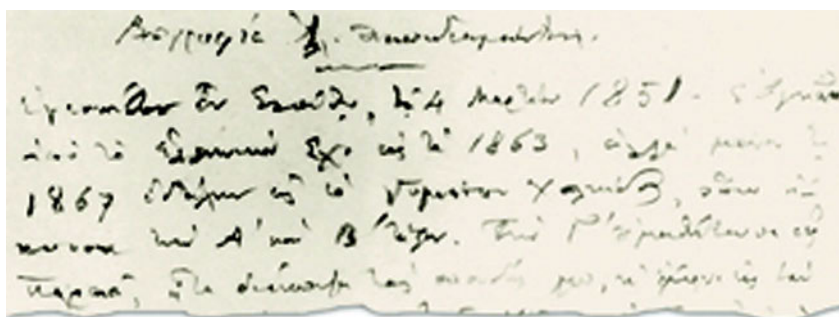 Βιογραφία Ἀ. Παπαδιαμάντη.
Ἐγεννήθην ἐν Σκιάθῳ, τῇ 4 Μαρτίου 1851. Ἐβγῆκα
ἀπὸ τὸ Ἑλληνικὸν Σχ. εἰς τὰ 1863, ἀλλὰ μόνον τῷ
1867 ἐστάλην εἰς τὸ Γυμνάσιον Χαλκίδος, ὅπου
ἤκουσα τὴν Α΄ καὶ Β΄ τάξιν. Τὴν Γ΄ ἐμαθήτευσα εἰς
Πειραιᾶ, εἶτα διέκοψα τὰς σπουδάς μου, κ' ἔμεινα εἰς τὴν